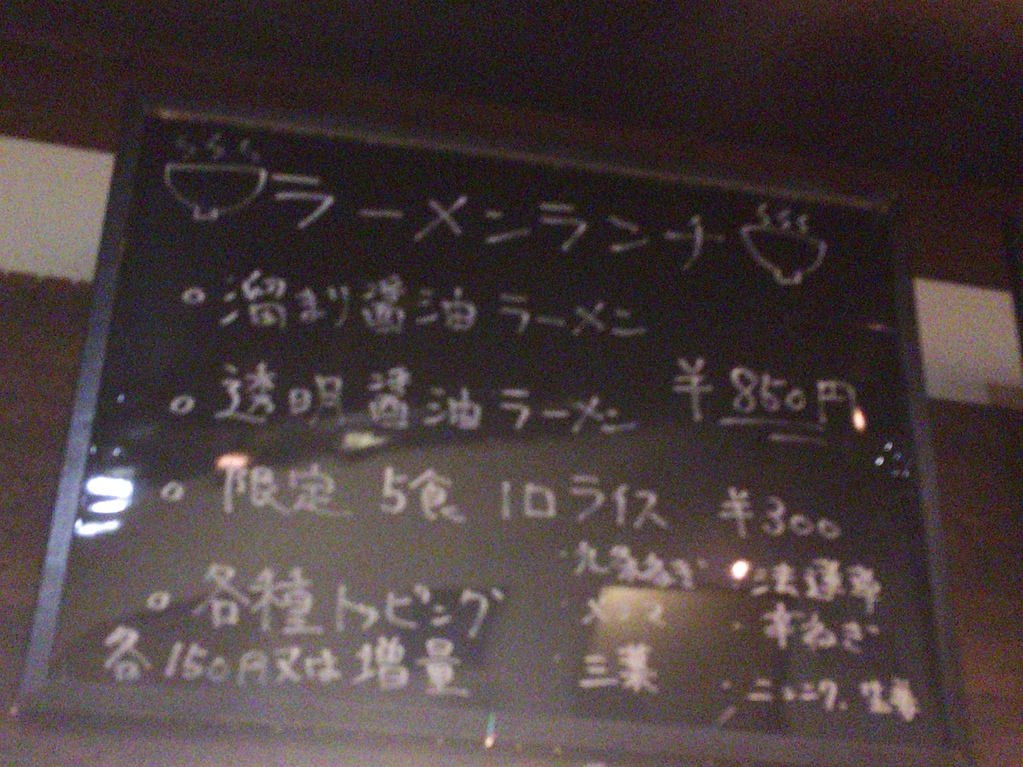 ラーメンランチ
○溜まり醤油ラーメン
○透明醤油ラーメン ¥850円
○限定 5食 1口ライス ¥300
○各種トッピング
各150円又は増量
・九条ねぎ
・メンマ
・三葉
・法蓮草
・辛ねぎ
・ニンニク、生姜